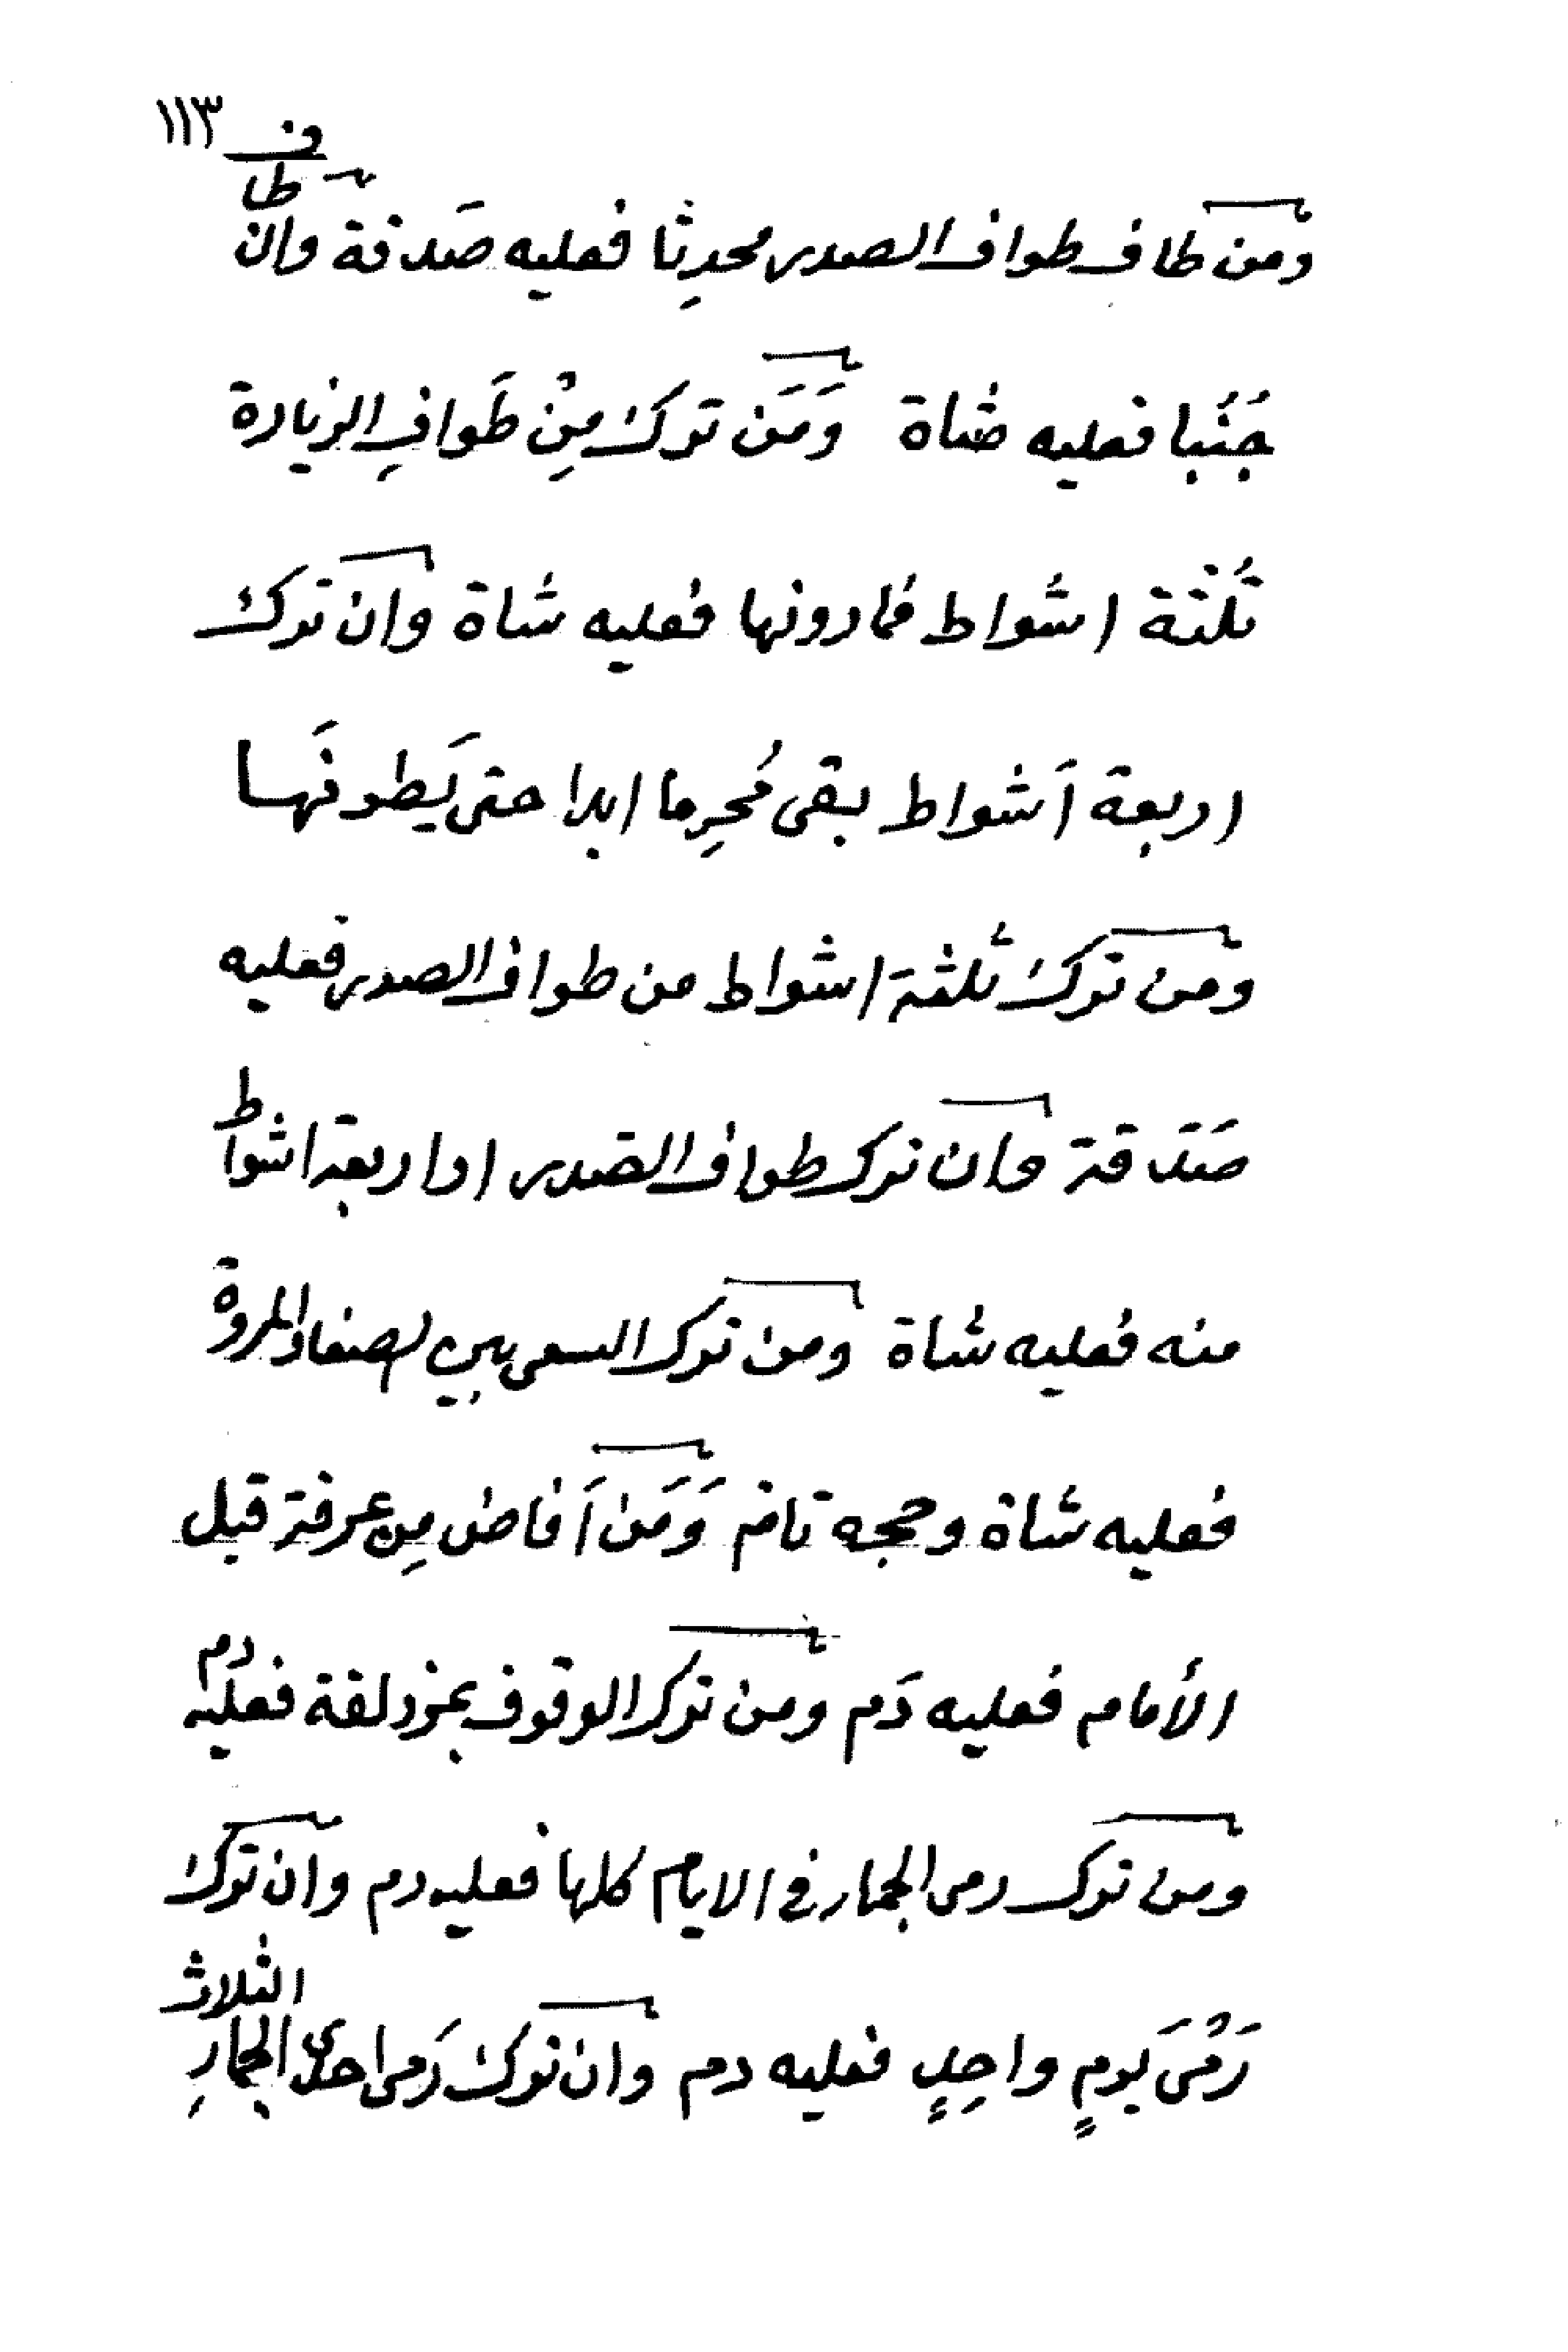 ١١٣
ومن طاف طواف الصدر محدِثا فعليه صَدقة وان طاف
جُنُبا فعليه شاة وَمَن ترك مِنْ طَوافِ الزيادة
ثُلثة اشواط فمادونها فعليه شاة وان ترك
اربعة أشواط بقى مُحرِما ابدا حتى يَطوفَها
ومن ترك ثُلثة اشواط من طواف الصدر فعليه
صَدَقة وان ترك طواف الصدر او اربعة اشواط
منه فعليه شاة ومن ترك السعى بين الصفا والمروة
فعليه شاة وحجه تام وَمَن أفاض مِن عرفة قبل
الأمام فعليه دَم ومن ترك الوقوف بمزدلفة فعليه دم
ومن ترك رمى الجمار فى الايام كلها فعليه دم وان ترك
رَمْىَ يومٍ واحِدٍ فعليه دم وان ترك رَمى احدى الجمارِ الثلاث